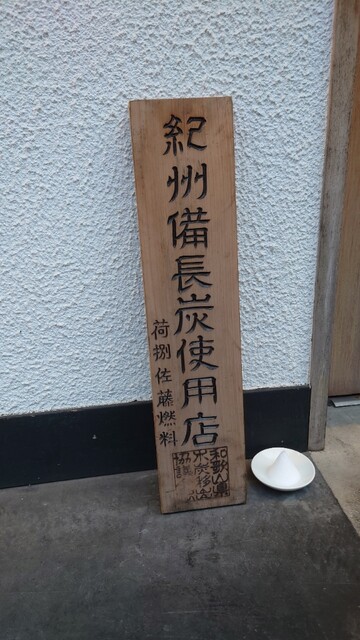 紀州備長炭使用店
荷捌佐藤燃料
和歌山県
木炭移出
協議